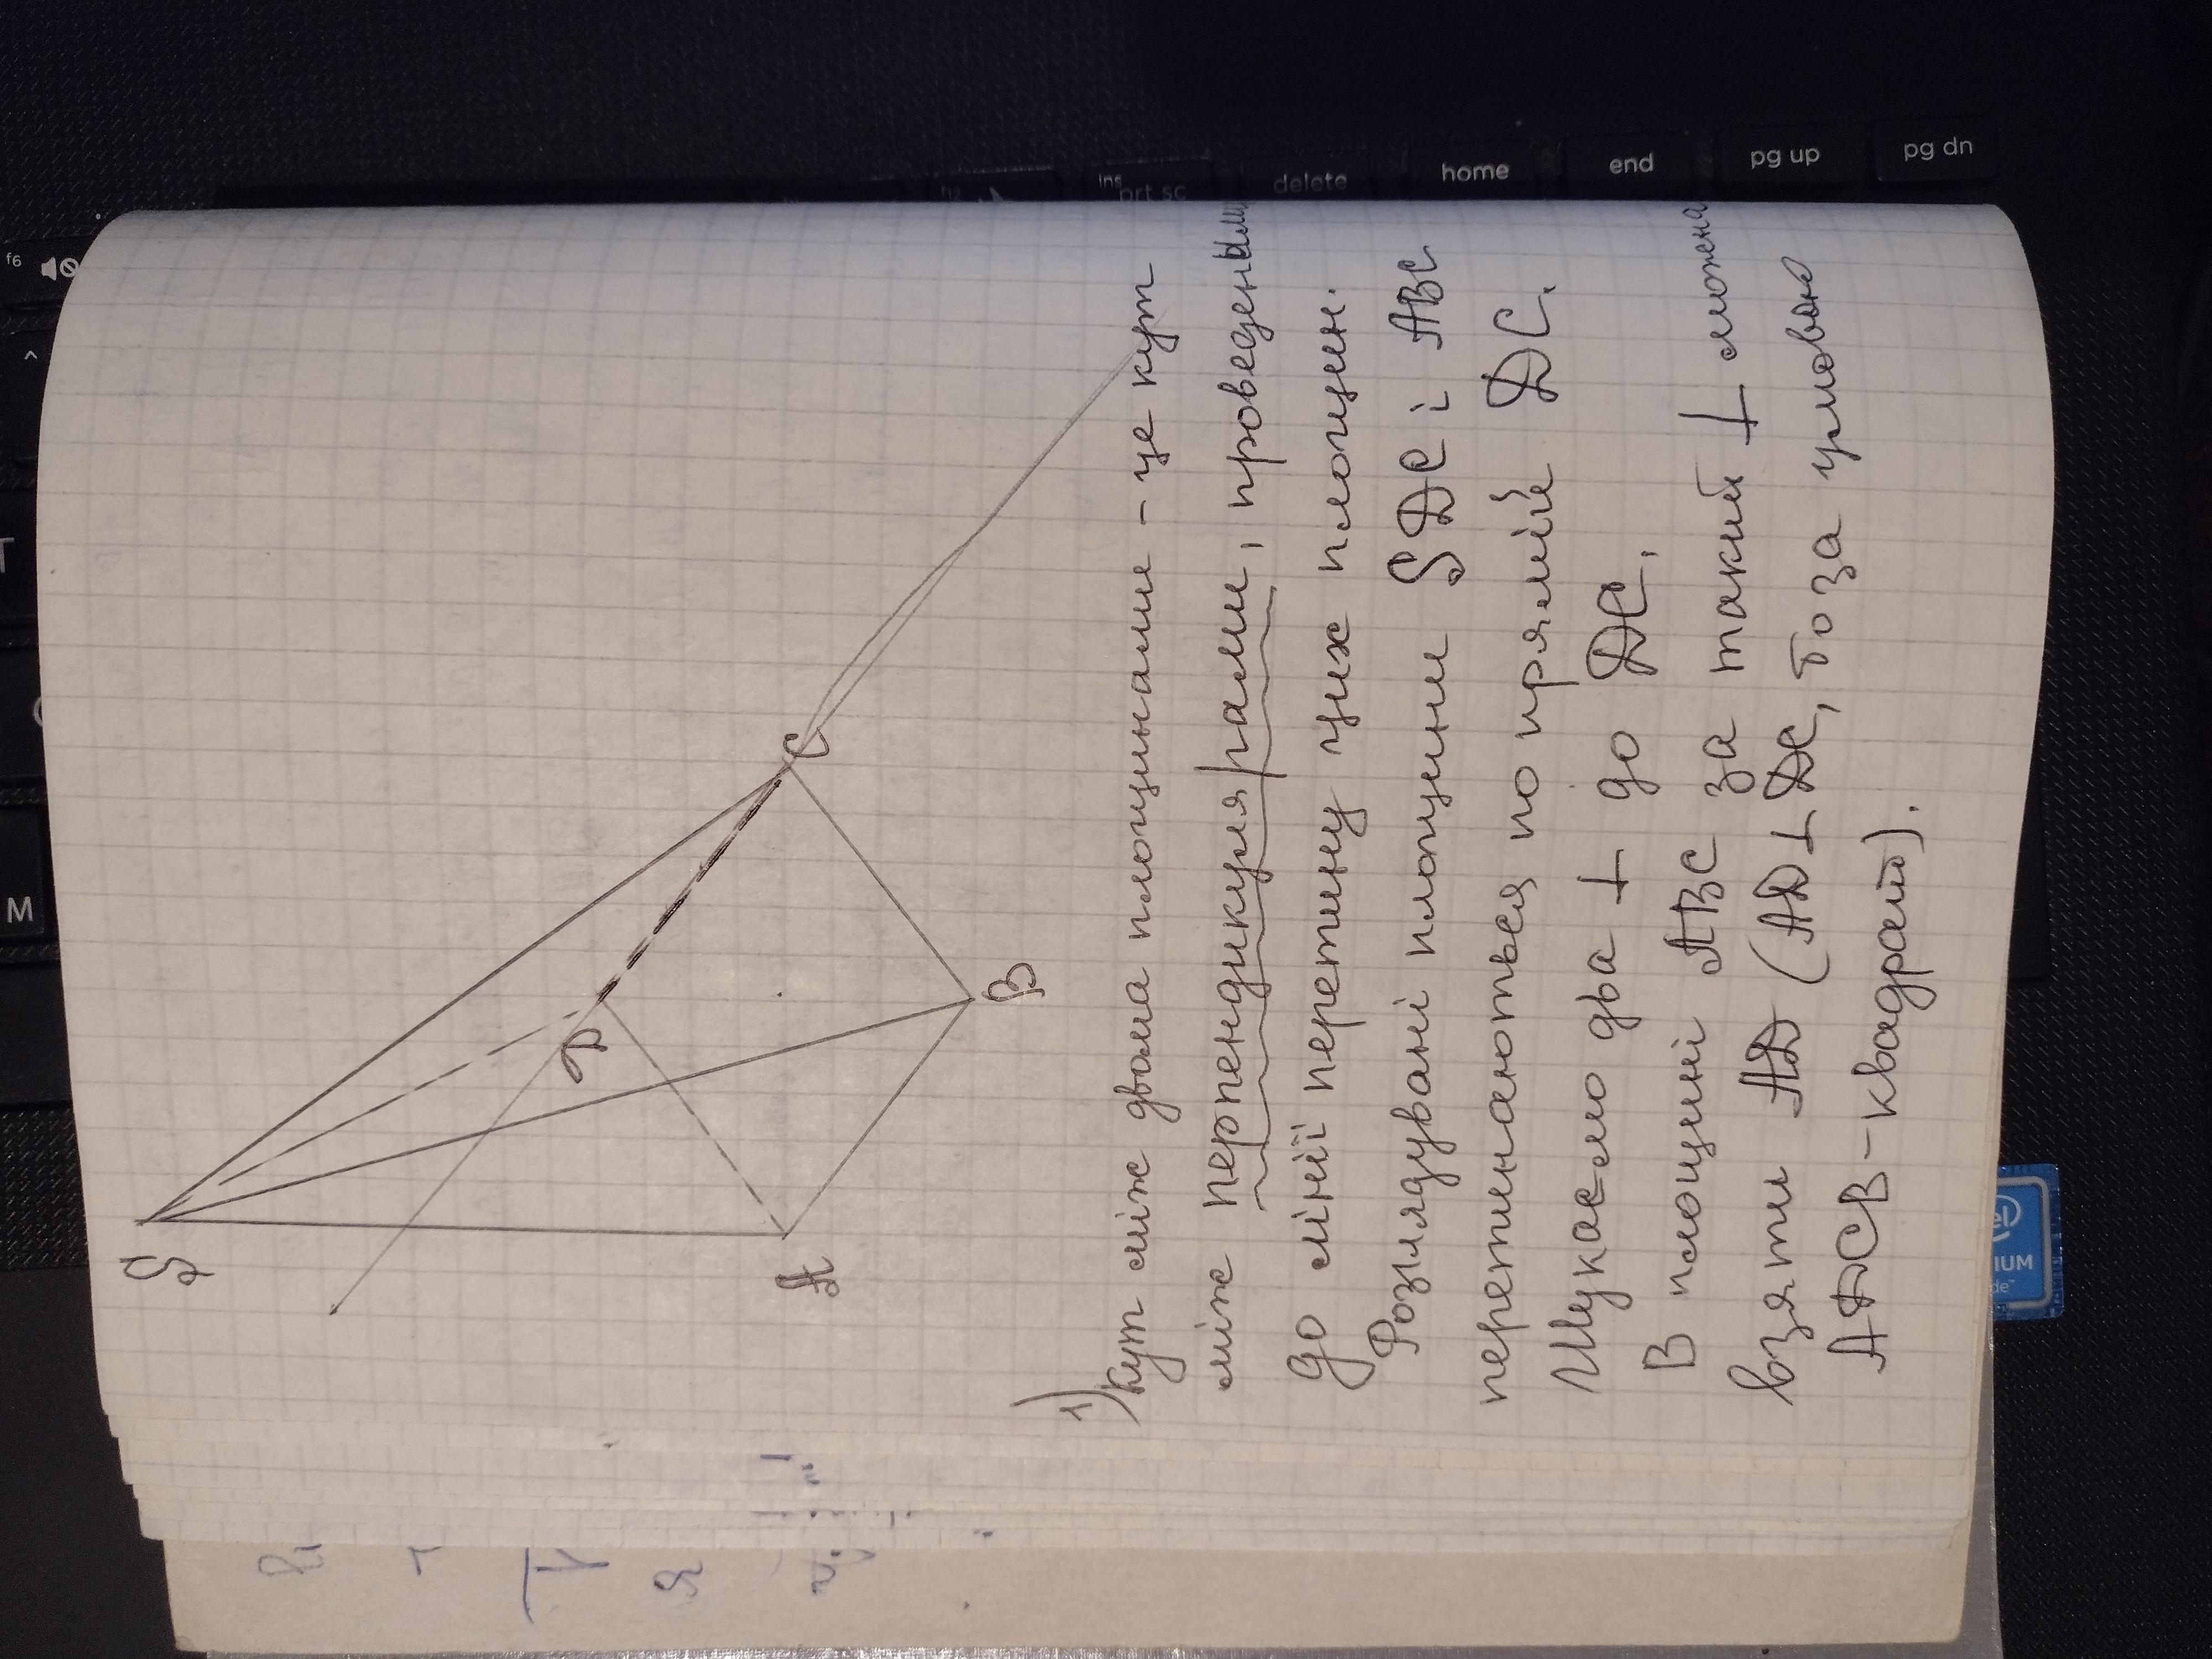 S
D
C
A
B
1) Кут між двома площинами - це кут
між перпендикулярами, проведеними
до лінії перетину цих площин.
Розглядувані площини SDC і ABC
перетинаються по прямій DC.
Шукаємо два ⊥ до DC.
В площині ABC за такий ⊥ можна
взяти AD (AD ⊥ DC, бо за умовою
ADCB - квадрат).
f6
ins
prt sc
delete
home
end
pg up
pg dn
M